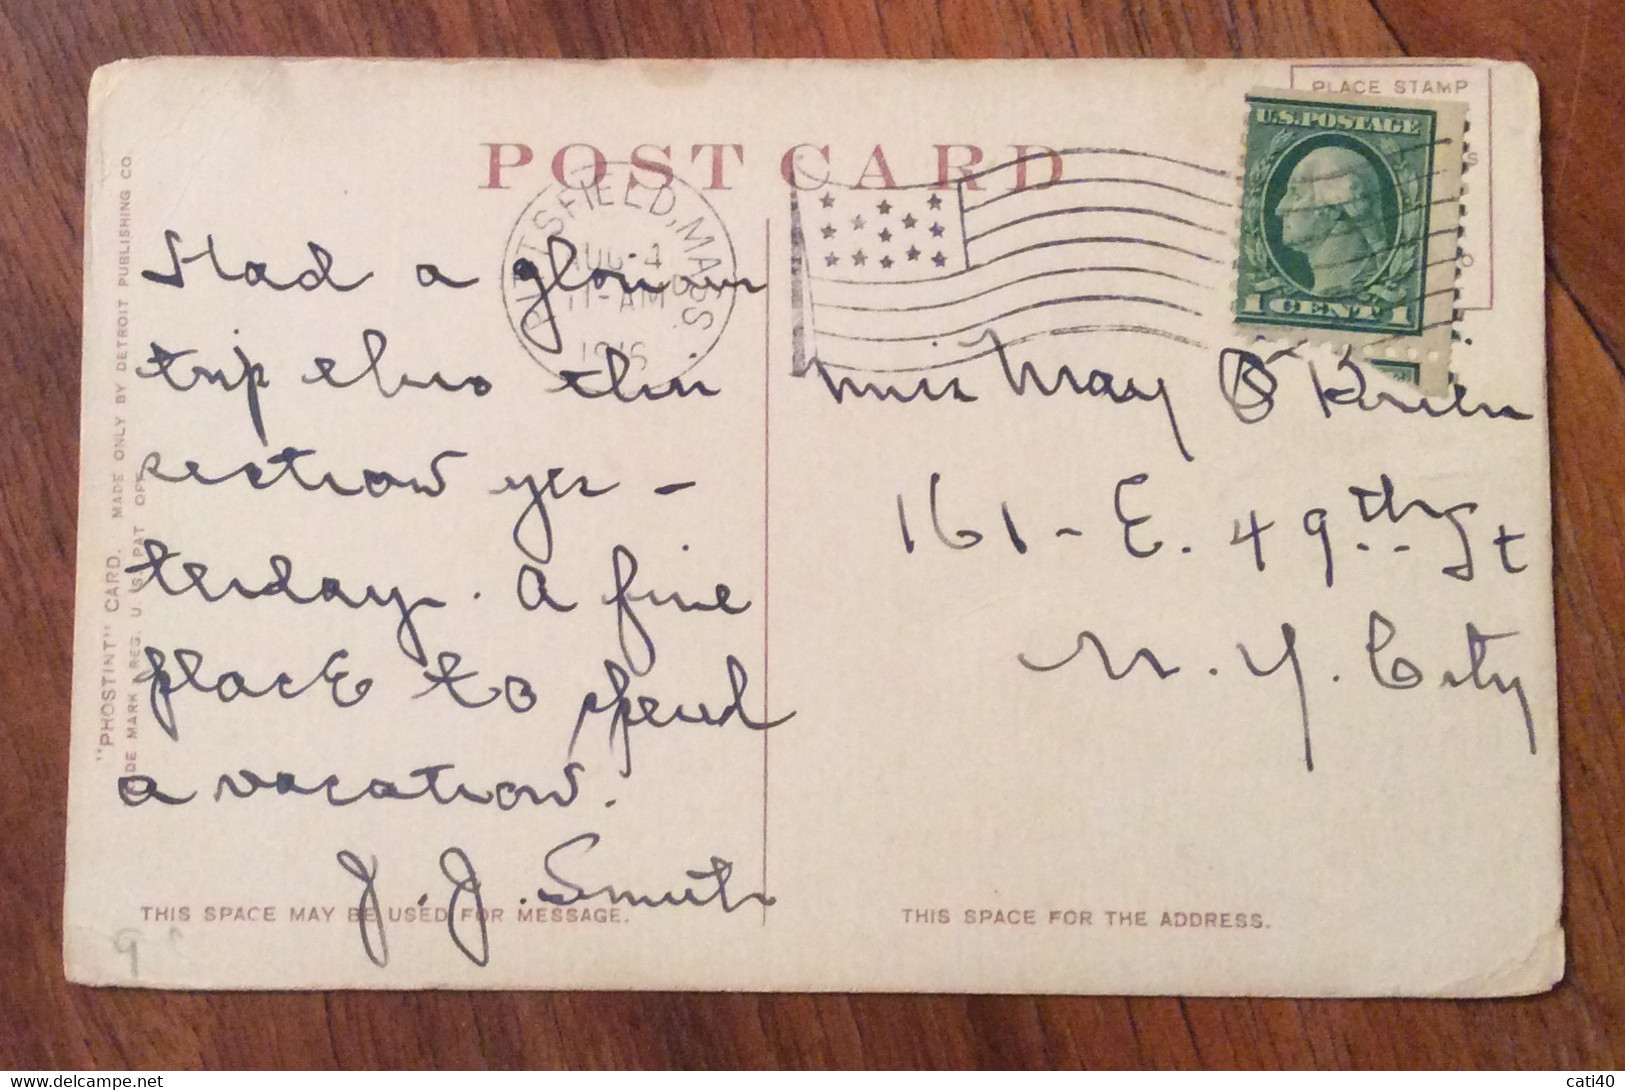 PLACE STAMP
POST CARD
U.S. POSTAGE
1 CENT 1
PITTSFIELD, MASS.
AUG 4
11-AM
Had a glorious
trip thro this
section yes-
terday. A fine
place to spend
a vacation.
J. J. Smith
Miss May O'Brien
161 - E. 49th St
N. Y. City
THIS SPACE MAY BE USED FOR MESSAGE.
THIS SPACE FOR THE ADDRESS.
"PHOSTINT" CARD. MADE ONLY BY DETROIT PUBLISHING CO.
DE MARK REG. U.S. PAT OFF.
9
cati40